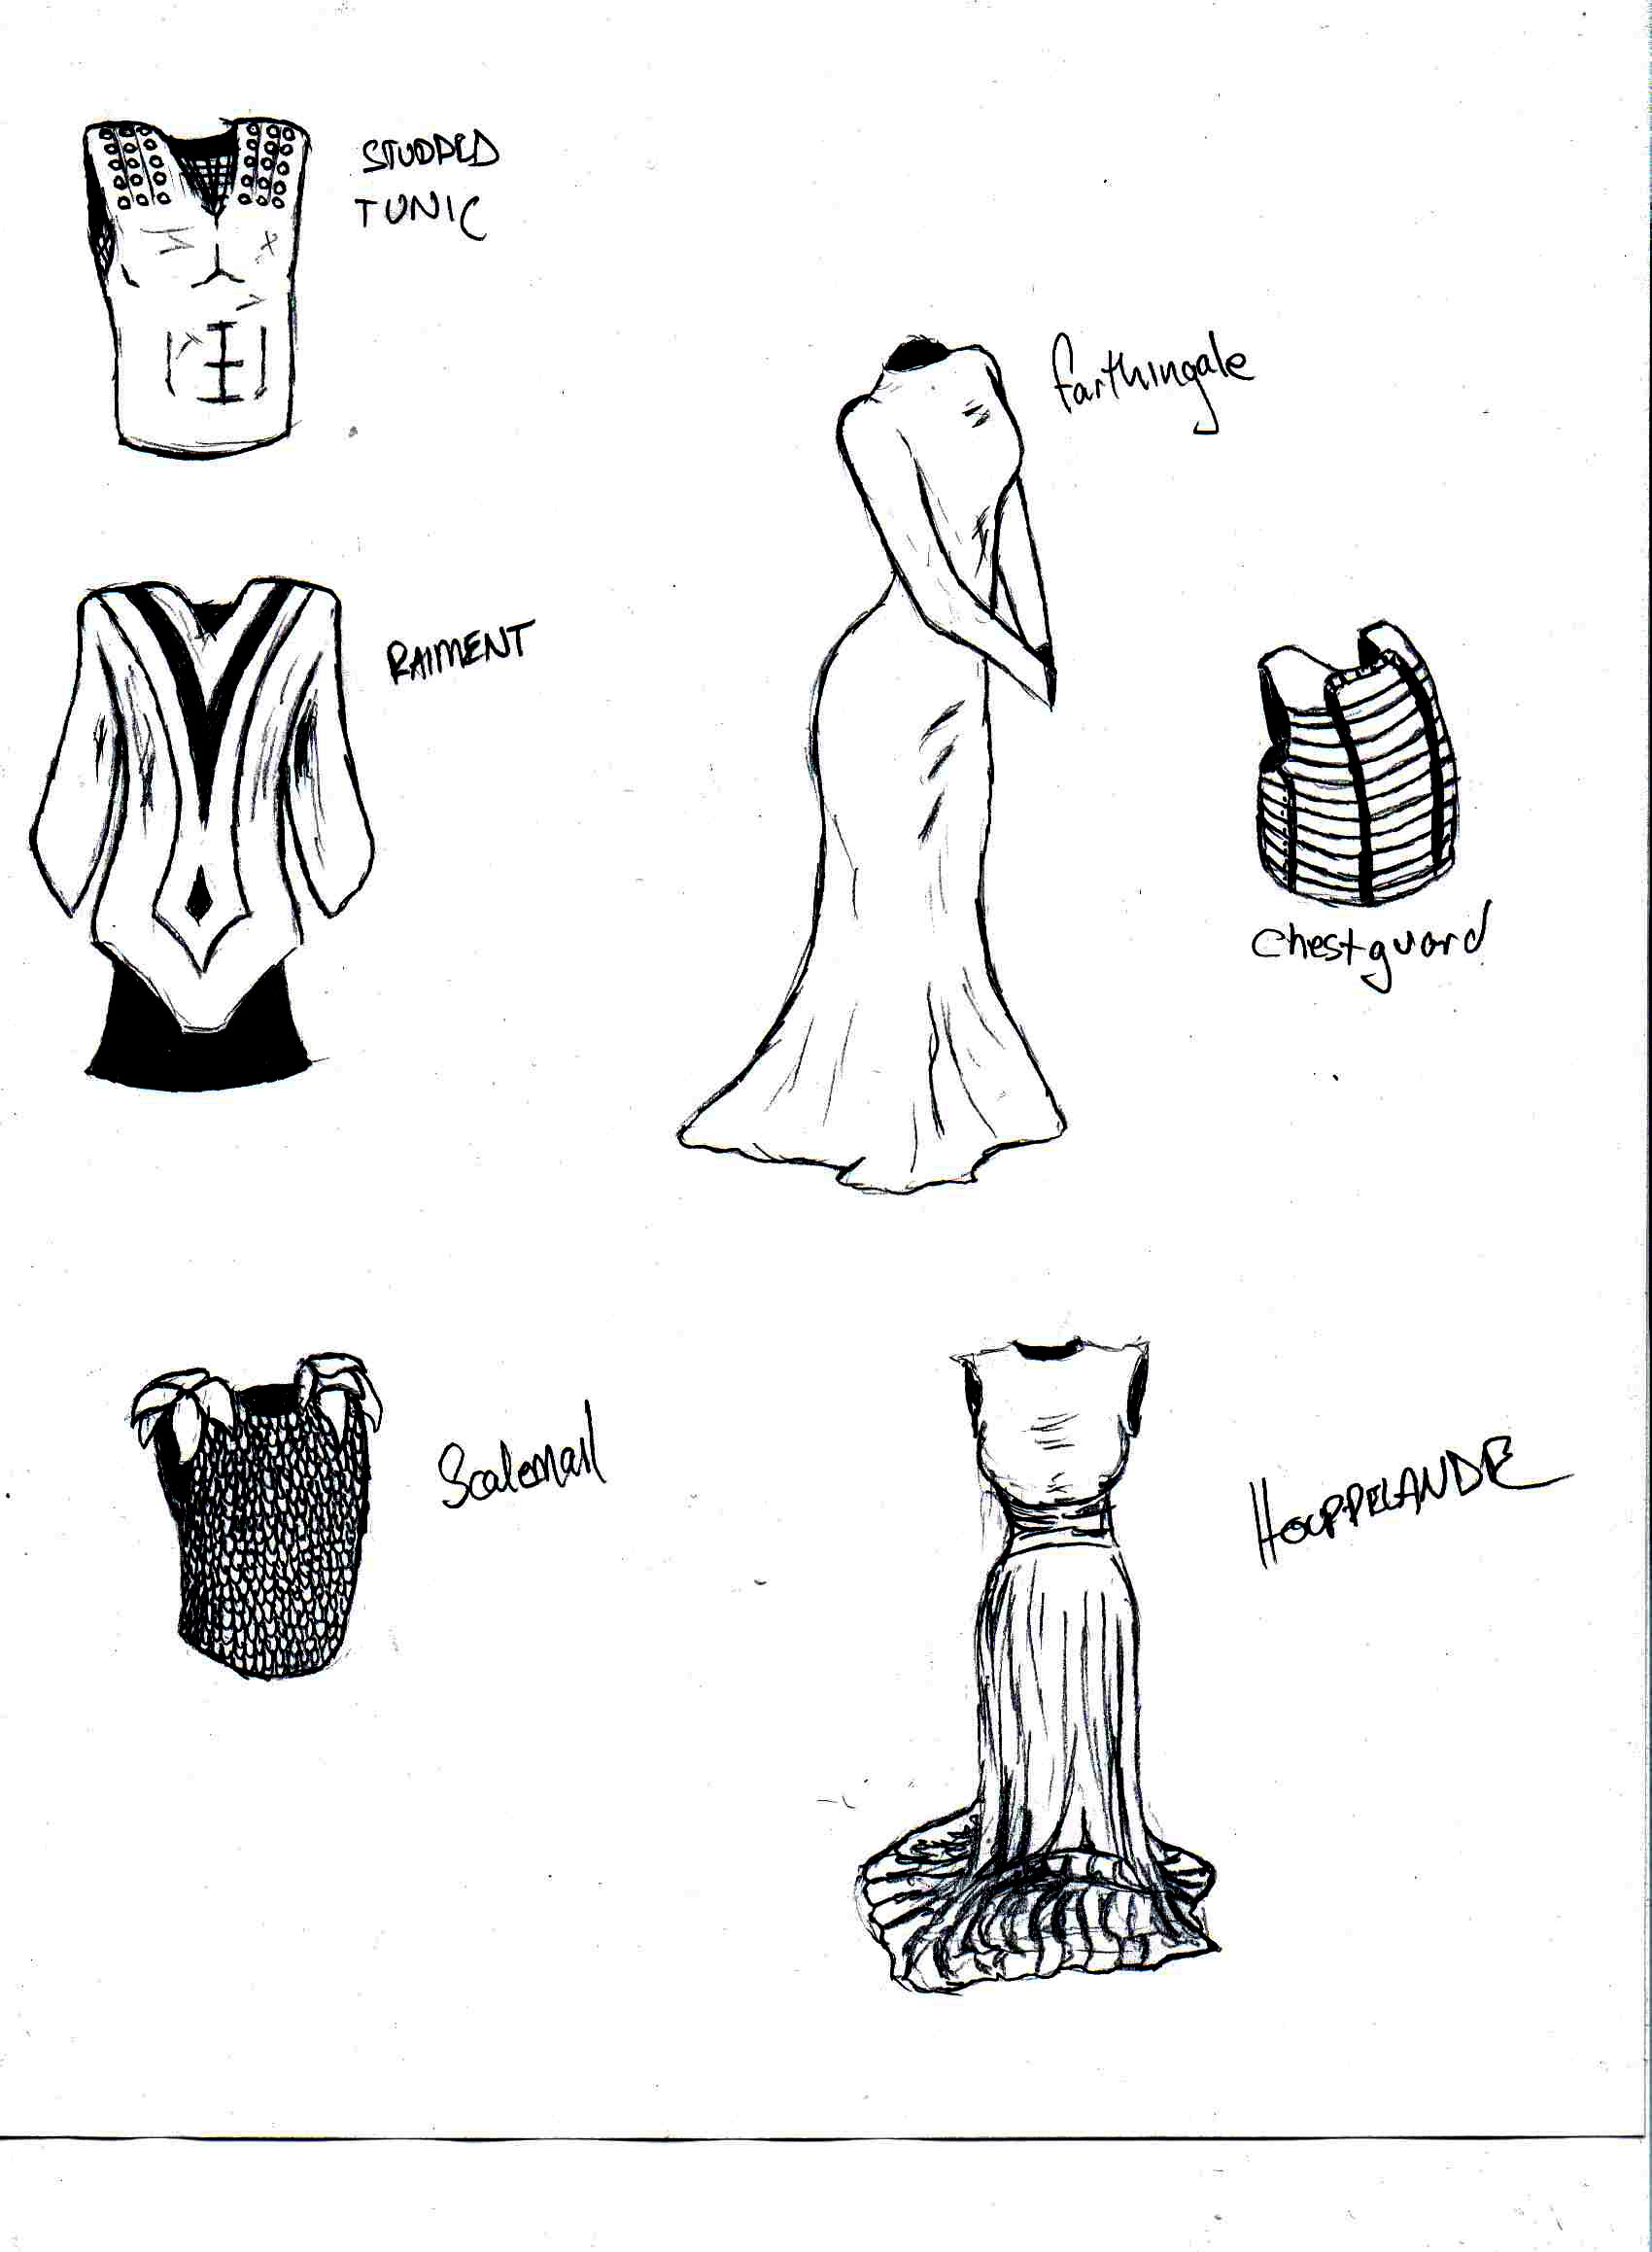 STUDDED
TUNIC
farthingale
RAIMENT
chestguard
Scalemail
HOUPPELANDE